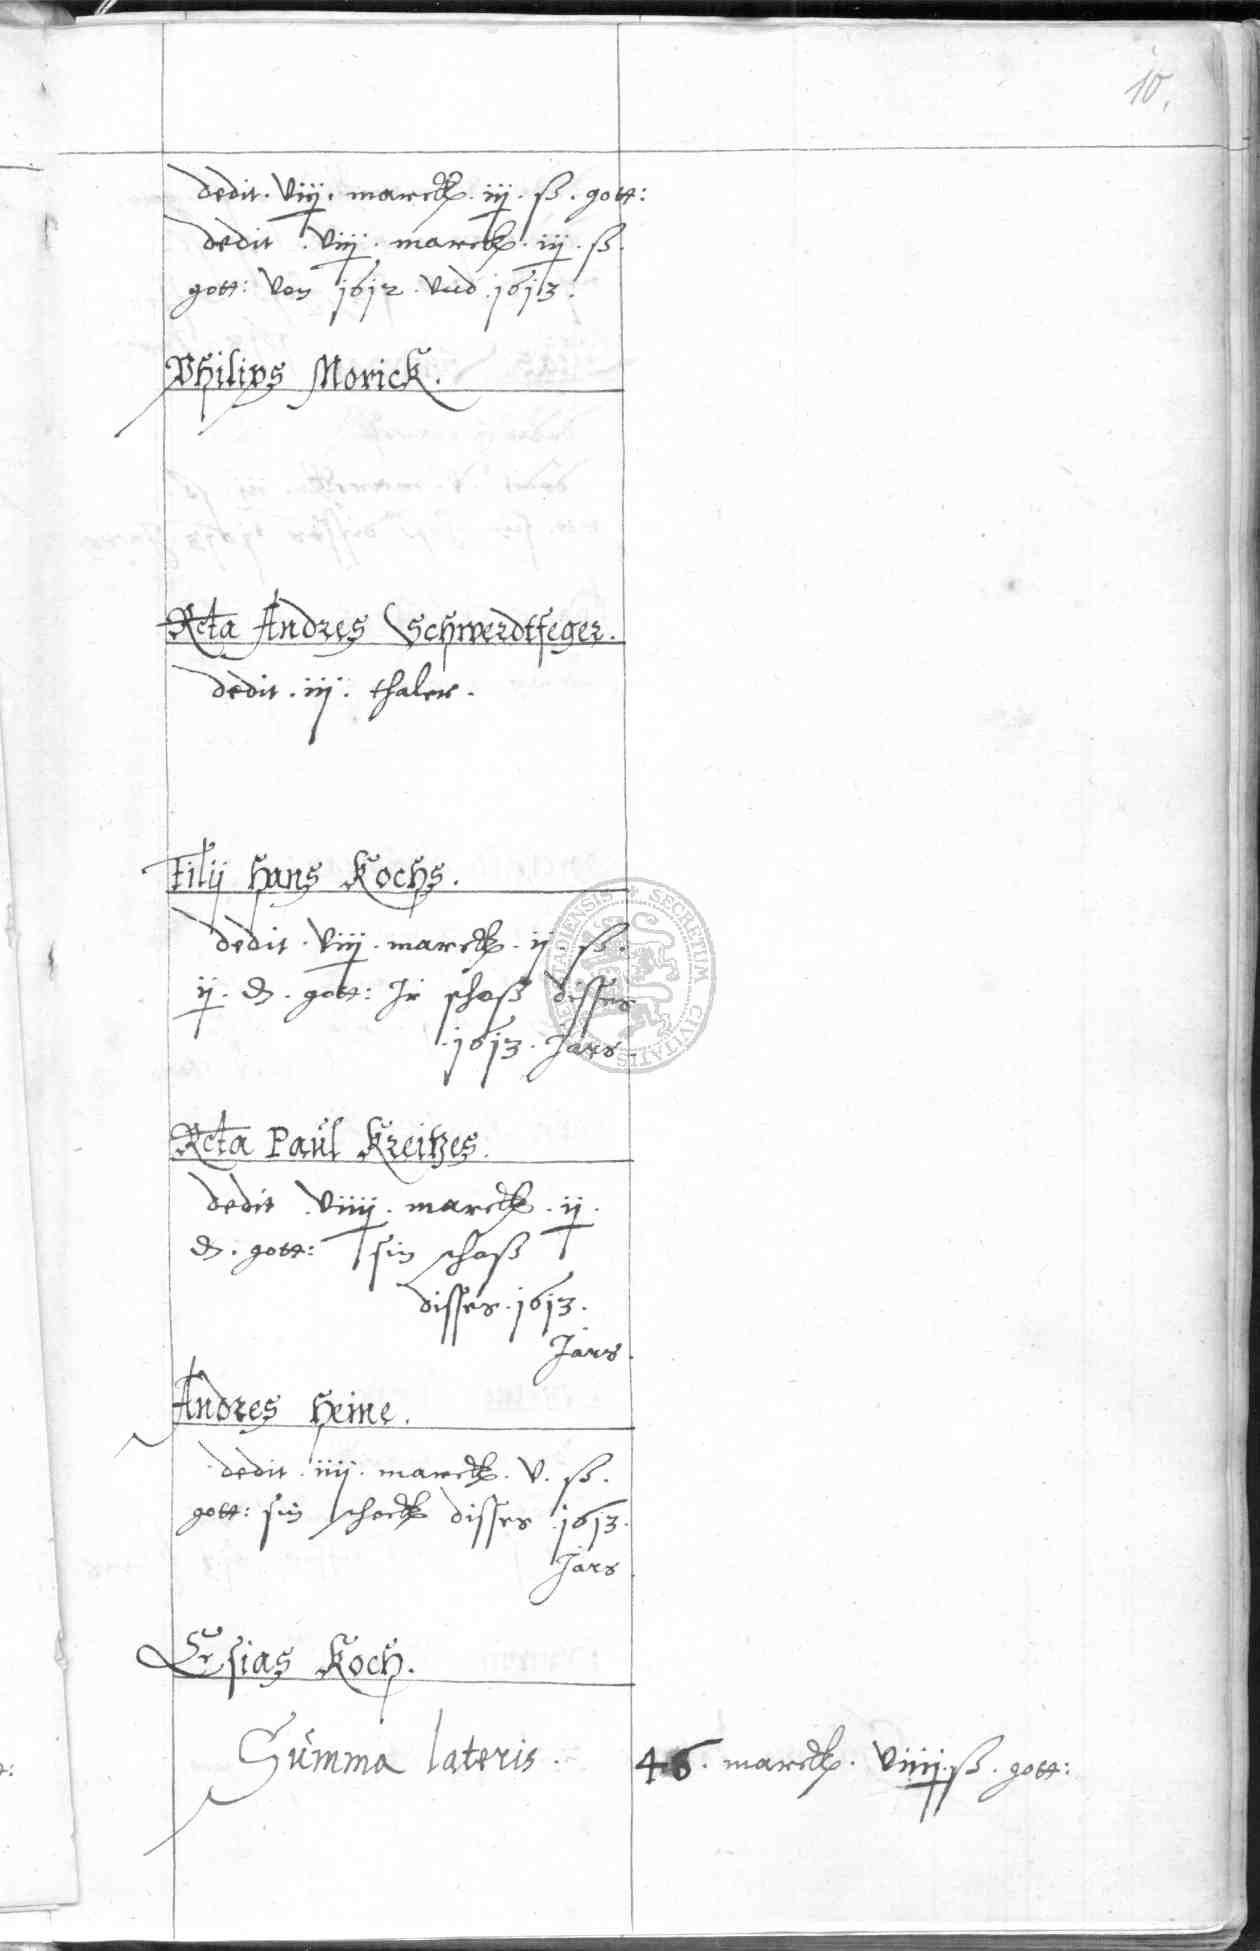 10.
dedit. viij. marck. iij. ß. gott:
dedit. viij. marck. iij. ß.
gott: von 1612. vnd. 1613.
Philips Morick.
Rcta Andres Schwerdtfeger.
dedit. iij. thaler.
Filij Hans Kochs.
dedit. viij. marck. ij. ß.
ij. d. gott: Ir schoß disses
1613. Jars.
Rcta Paul Kreitzes.
dedit viiij. marck. ij.
d. gott: sin schoß
disses. 1613.
Jars.
Andres Heine.
dedit. iiij. marck. v. ß.
gott: sin schock disses 1613.
Jars
Esias Koch.
Summa lateris. 46. marck. viiij. ß. gott:
SECRETUM CIVITATIS